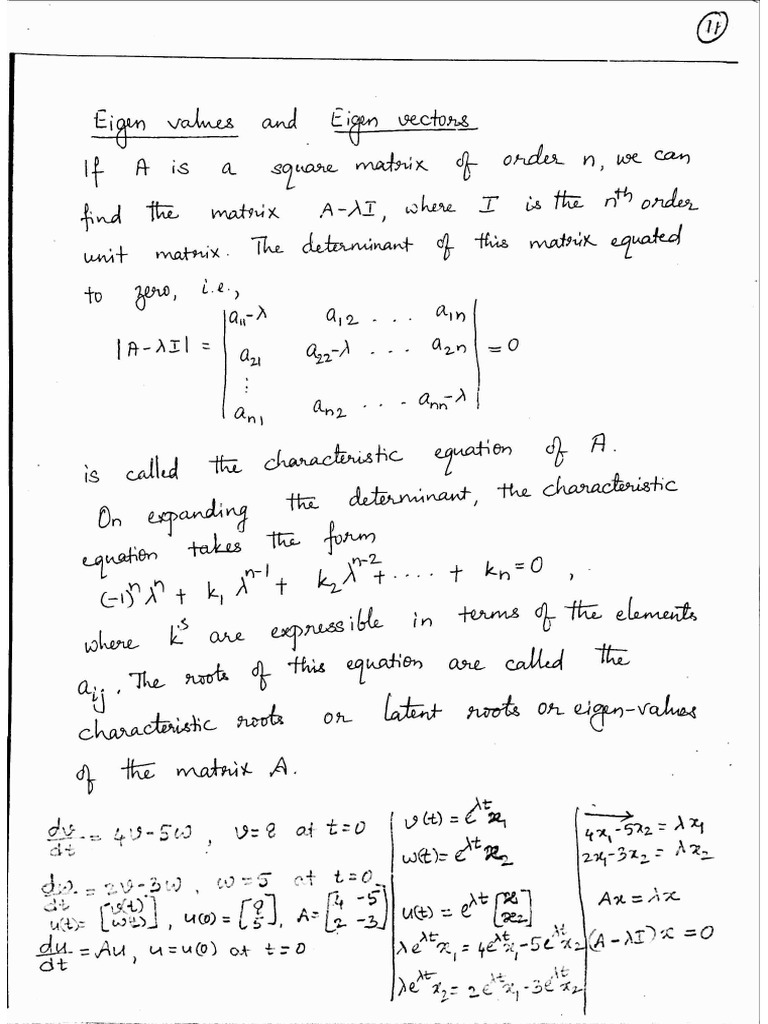 17
Eigen values and Eigen vectors
If A is a square matrix of order n, we can
find the matrix A-λI, where I is the nth order
unit matrix. The determinant of this matrix equated
to zero, i.e.,
|A-λI| = | a11-λ a12 ... a1n |
| a21 a22-λ ... a2n | = 0
⋮
| an1 an2 ... ann-λ |
is called the characteristic equation of A.
On expanding the determinant, the characteristic
equation takes the form
(-1)^n λ^n + k1 λ^(n-1) + k2 λ^(n-2) + .... + kn = 0 ,
where k's are expressible in terms of the elements
aij. The roots of this equation are called the
characteristic roots or latent roots or eigen-values
of the matrix A.
dv/dt = 4v-5w , v=8 at t=0
dw/dt = 2v-3w , w=5 at t=0
u(t)= [v(t) w(t)] , u(0) = [8 5], A= [4 -5 2 -3]
du/dt = Au, u=u(0) at t=0
v(t) = e^λt x1
w(t) = e^λt x2
u(t) = e^λt [x1 x2]
λe^λt x1 = 4e^λt x1 - 5e^λt x2
λe^λt x2 = 2e^λt x1 - 3e^λt x2
4x1-5x2 = λx1
2x1-3x2 = λx2
Ax = λx
(A-λI)x = 0